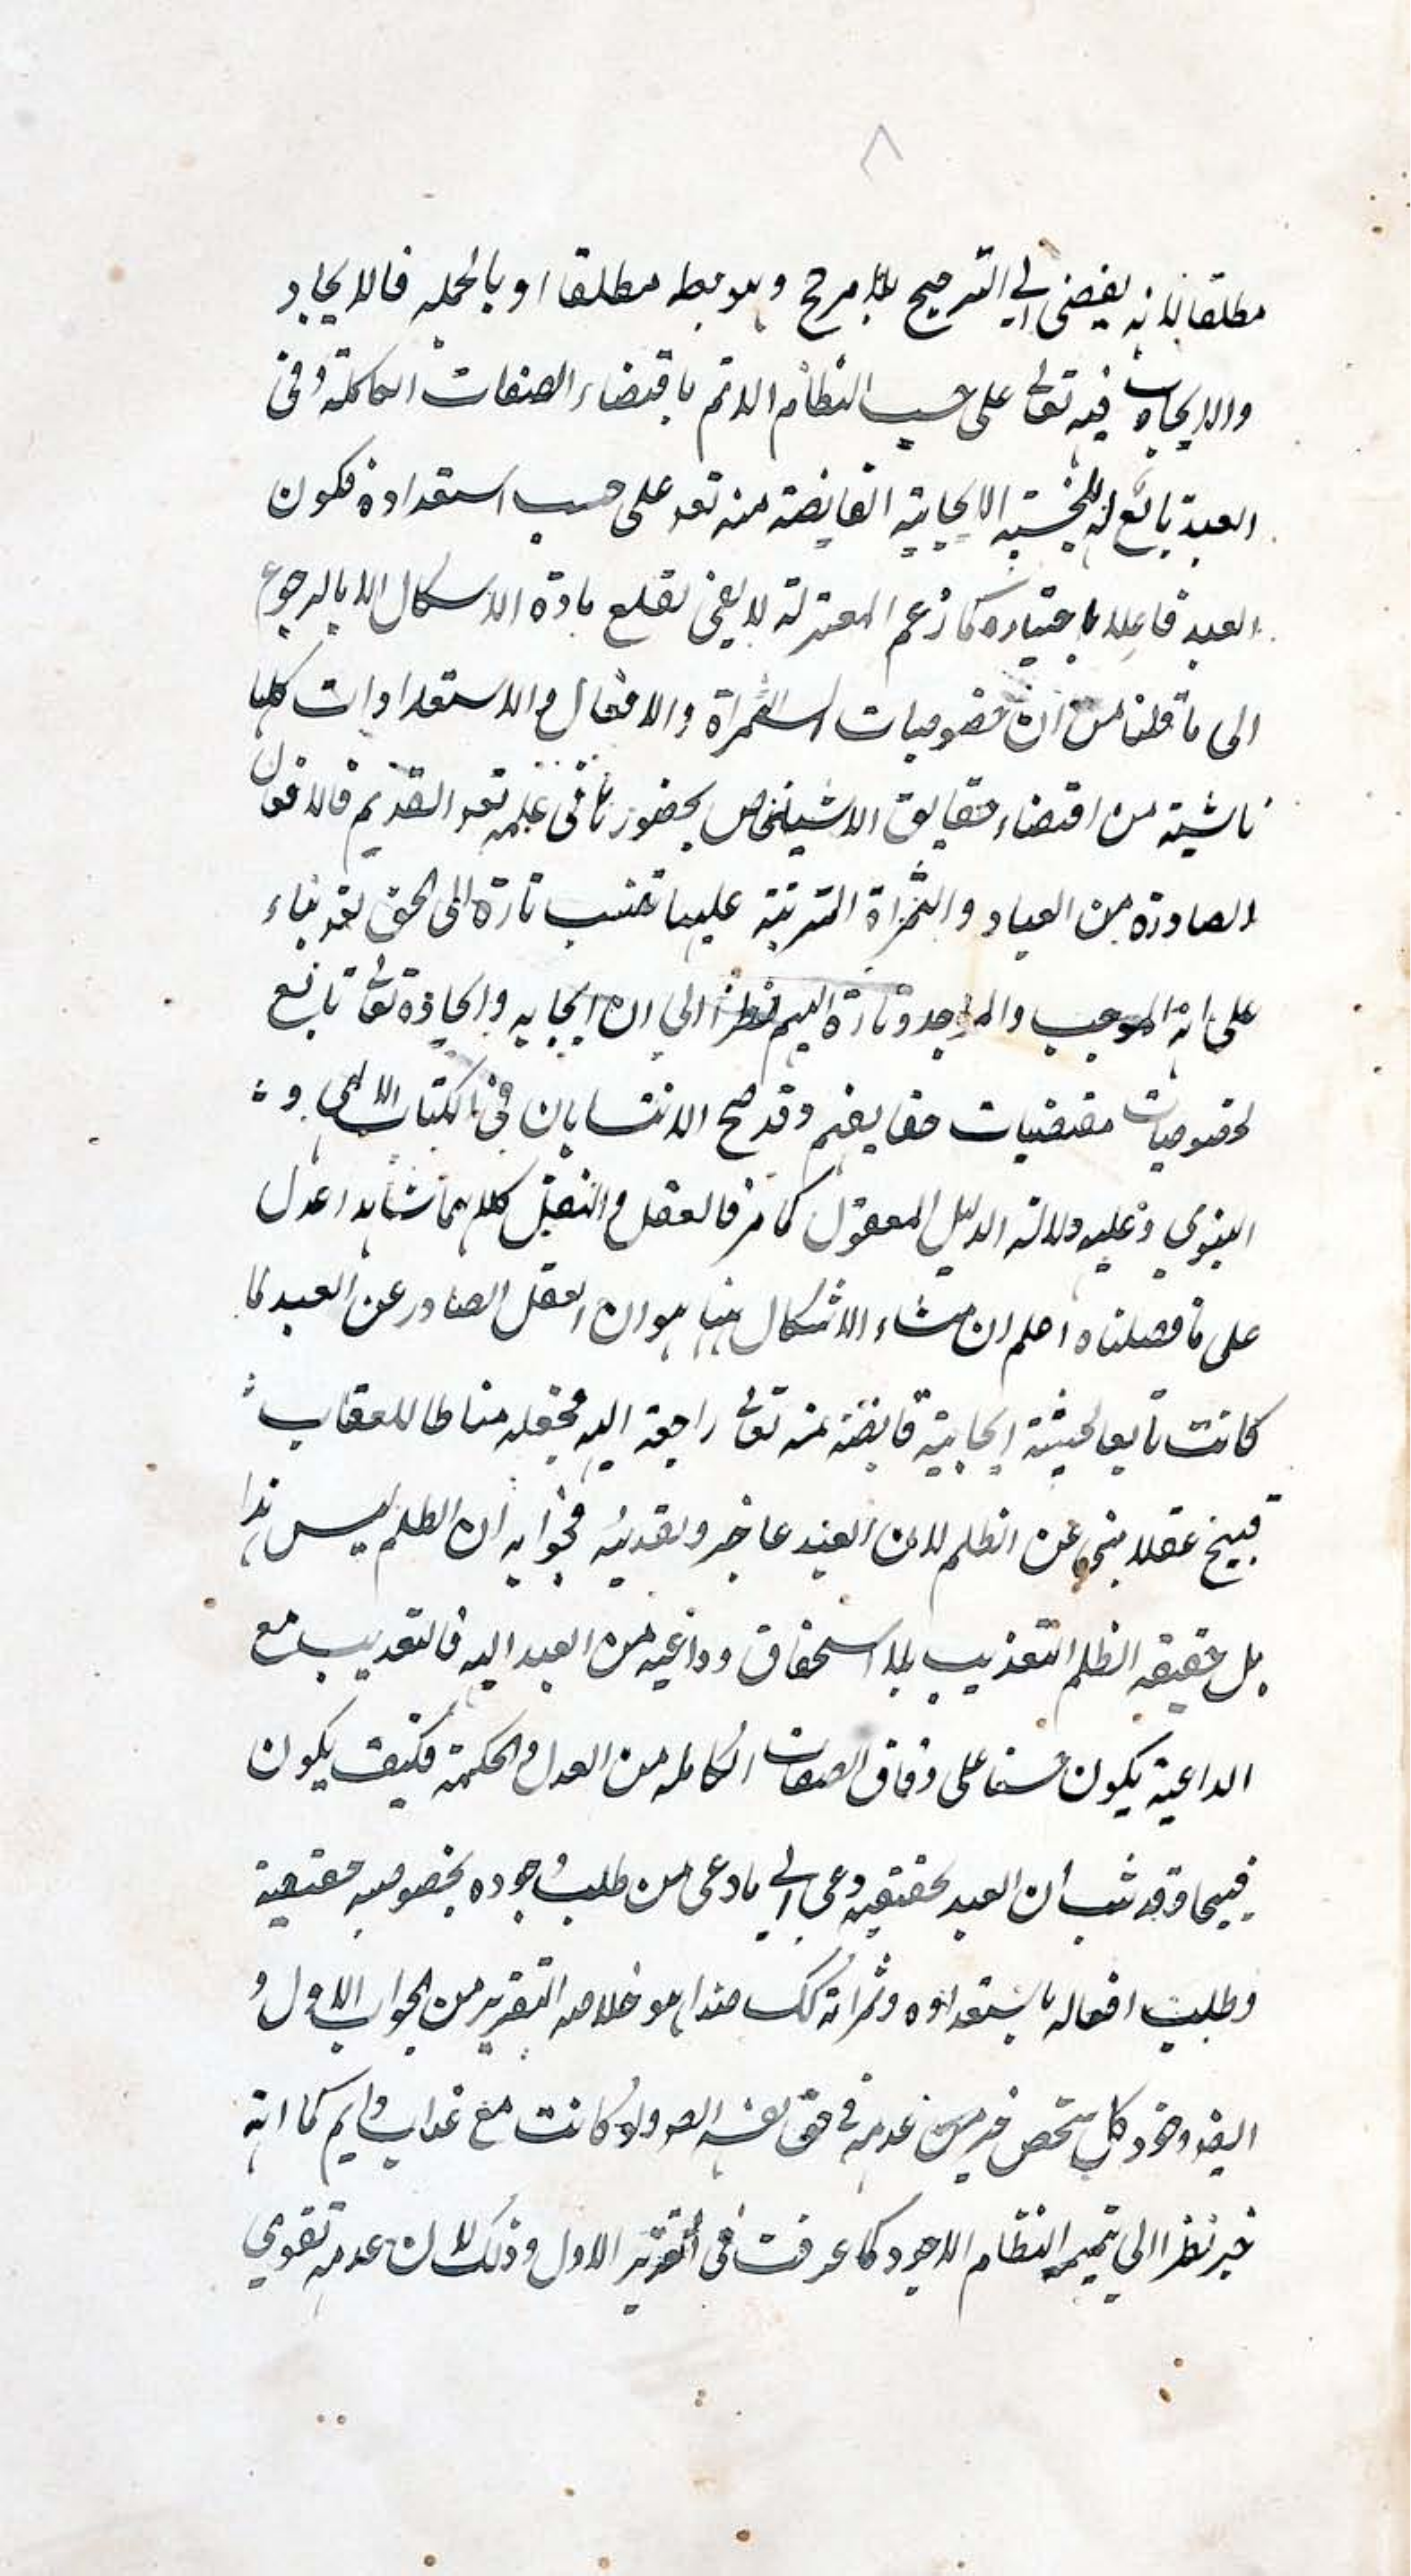 ٨
مطلقا لانه يفضى الى الترجيح بلا مرجح وبلا مطلقا او بالجملة فالايجاد
والايجاب فيه تعالى على حسب النظام الاتم باقتضاء الصفات الكاملة وفى
العبد تابع الايجابية الفايضة منه تعه على حسب استعداده فكون
العبد فاعلا باختياره كما زعم المعتزلة لا يفى لقلع مادة الاشكال الا بالرجوع
الى ما قلنا من ان خصوصيات الثمراة والافعال والاستعدادات كلها
ناشية من اقتضاء حقايق الاشخاص بحضورها فى علمه تعه القديم فالافعال
الصادرة من العباد والثمراة المترتبة عليها تنسب تارة الى الحق تعه بناء
على انه الموجب والموجد وتارة اليهم نظرا الى ان ايجابه وايجاده تعالى تابع
لخصوصيات مقتضيات حقايقهم وقد صح الانتسابان فى الكتاب الالهى و
النبوي وعليه دلالة الدليل المعقول كما مر فالعقل والنقل كلاهما شاهدا عدل
على ما فصلناه اعلم ان منشاء الاشكال هنا هو ان الفعل الصادر عن العبد لما
كانت تابعا لحيثية ايجابية فايضة منه تعالى راجعة اليه فجعله مناطا للعقاب
قبيح عقلا ينبى عن الظلم لان العبد عاجز وتعذيبه فجوابه ان الظلم ليس هذا
بل حقيقة الظلم التعذيب بلا استحقاق وداعية من العبد اليه فالتعذيب مع
الداعية يكون حسنا على وفاق الصفات الكاملة من العدل والحكمة فكيف يكون
قبيحا وقد ثبت ان العبد بحقيقته دعى الى ما دعى من طلب وجوده بخصوصية حقيقية
وطلب افعاله باستعداده وثمراته كك هذا هو خلاصة التقرير من الجواب الاول و
ايضا وجود كل شخص خير من عدمه فى حق نفسه ولو كانت مع عذاب دايم كما انه
خير نظرا الى تتميم النظام الاجود كما عرفت فى التقرير الاول وذلك لان عدمه تقوي